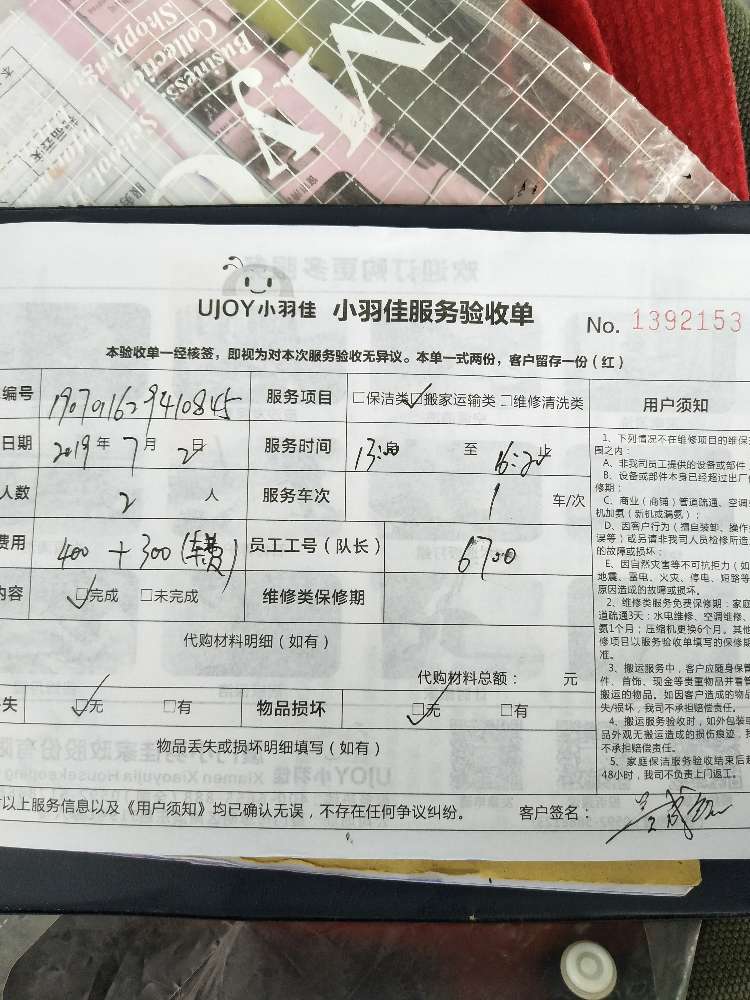 My
Business
Collection
Shopping
UJOY小羽佳 小羽佳服务验收单 No. 1392153
本验收单一经核签，即视为对本次服务验收无异议。本单一式两份，客户留存一份（红）
编号 190701629410845 服务项目 □保洁类☑搬家运输类□维修清洗类 用户须知
日期 2019年7月2日 服务时间 13:00 至 16:20止
人数 2人 服务车次 1 车/次
费用 400+300(车费) 员工工号（队长） 6700
内容 ☑完成 □未完成 维修类保修期
代购材料明细（如有）
代购材料总额： 元
失 ☑无 □有 物品损坏 ☑无 □有
物品丢失或损坏明细填写（如有）
以上服务信息以及《用户须知》均已确认无误，不存在任何争议纠纷。 客户签名：
1、下列情况不在维修项目的维保
围之内：
A、非我司员工提供的设备或部件
B、设备或部件本身已经超过出厂
修期；
C、商业（商铺）管道疏通、空调
机加氨（新机或漏氨）；
D、因客户行为（擅自装卸、操作
误等）或另请非我司人员检修所造
的故障或损坏；
E、因自然灾害等不可抗拒力（如
地震、雷电、火灾、停电、短路等
原因造成的故障或损坏。
2、维修类服务免费保修期：家庭
道疏通3天；水电维修、空调维修、
氨1个月；压缩机更换6个月。其他
修项目以服务验收单填写的保修期
准。
3、搬运服务中，客户应随身保管
件、首饰、现金等贵重物品并看管
搬运的物品。如因客户造成的物品
失/损坏，我司不承担赔偿责任。
4、搬运服务验收时，如外包装或
品外观无搬运造成的损伤痕迹，我
不承担赔偿责任。
5、家庭保洁服务验收结束后超
48小时，我司不负责上门返工。